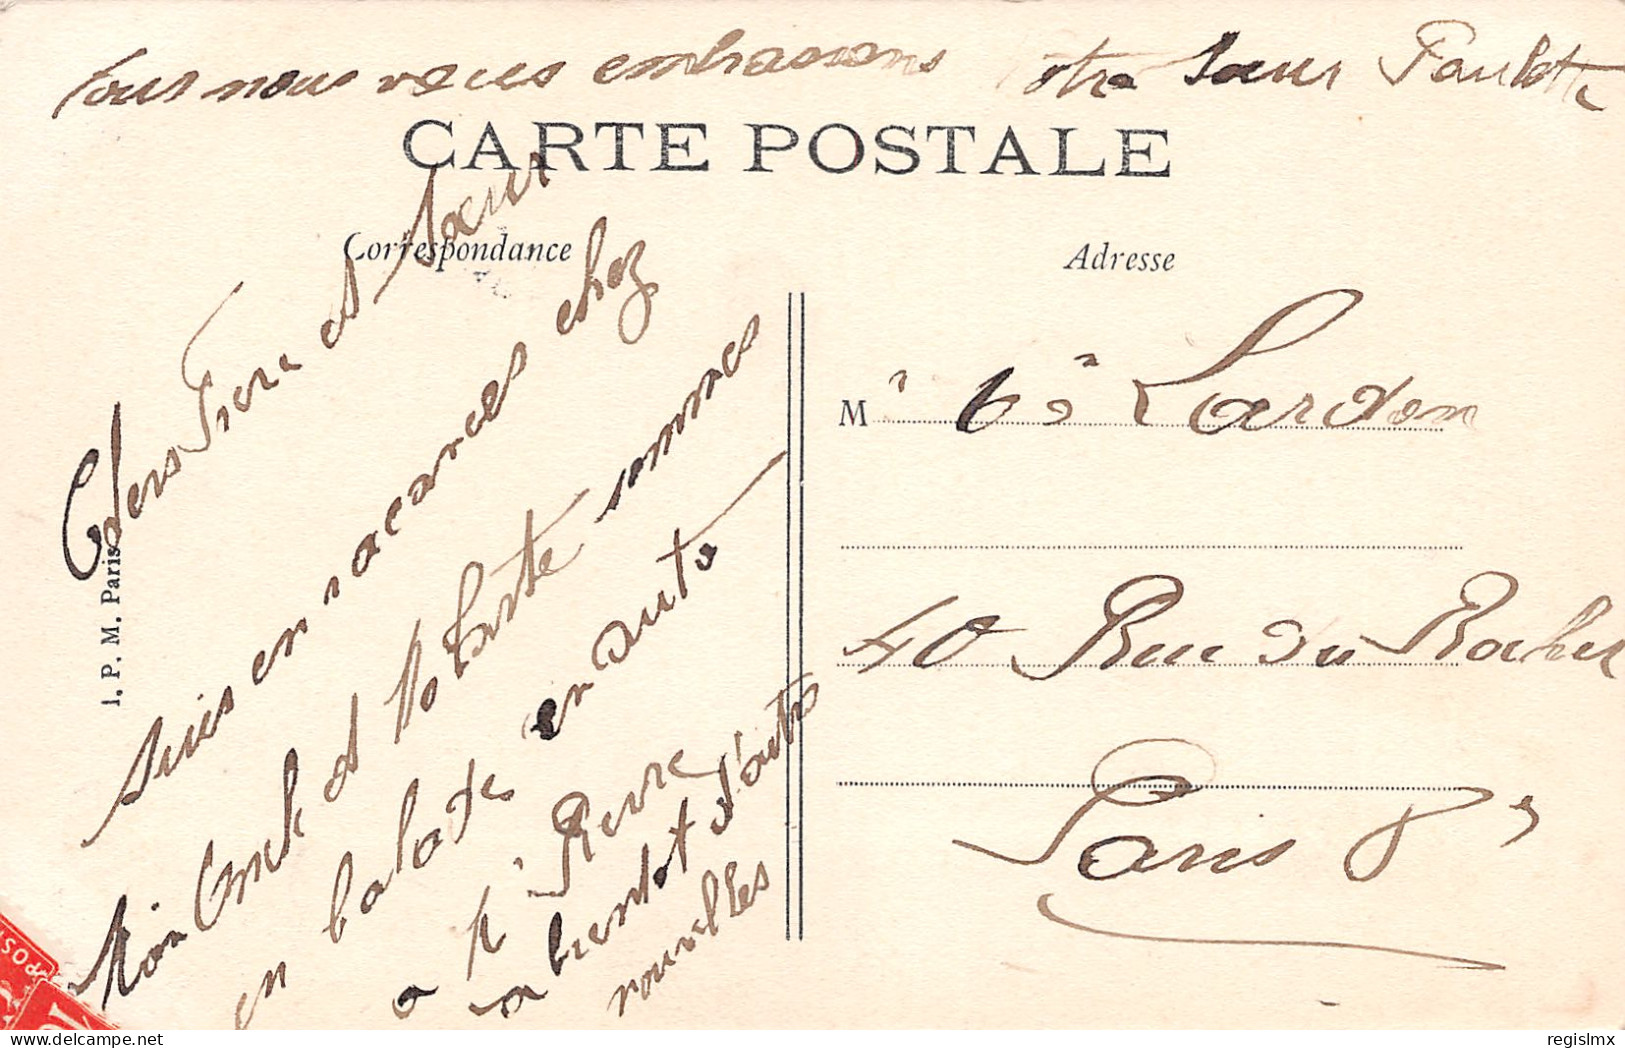 tous nous vous embrassons votre Sœur Paulette
CARTE POSTALE
Correspondance
Adresse
Chers Frere et Sœur
suis en vacances chez
Mon Oncle et Ma tante sommes
en balade en auto
a St Pierre
a bientot d'autres
nouvelles
M Lardon
40 Rue du Rocher
Paris 8e
I. P. M. Paris
regislmx